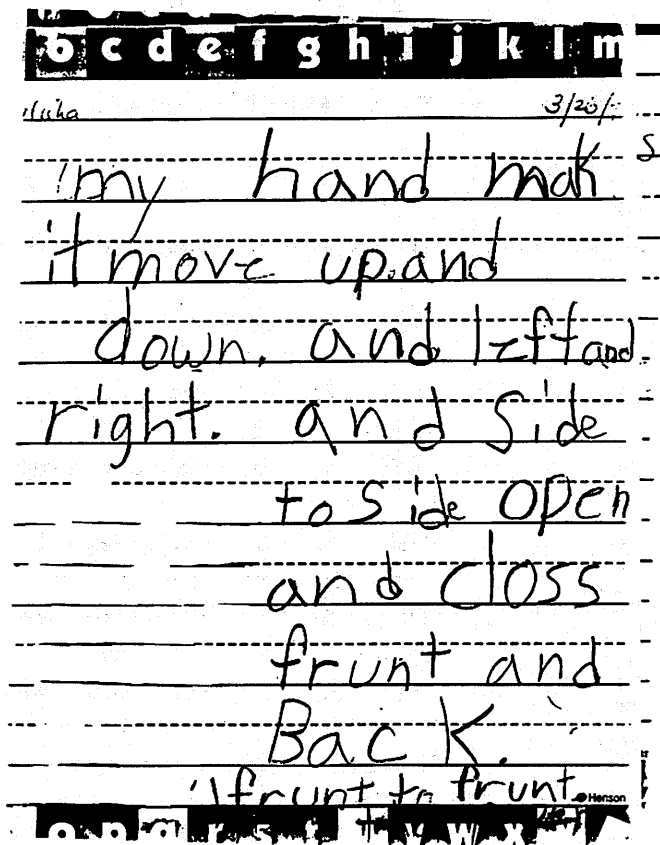 b c d e f g h i j k l m
3/20/
my hand mak
it move up.and
down. and left and
right. and side
to side open
and closs
frunt and
Back.
frunt to frunt
Henson